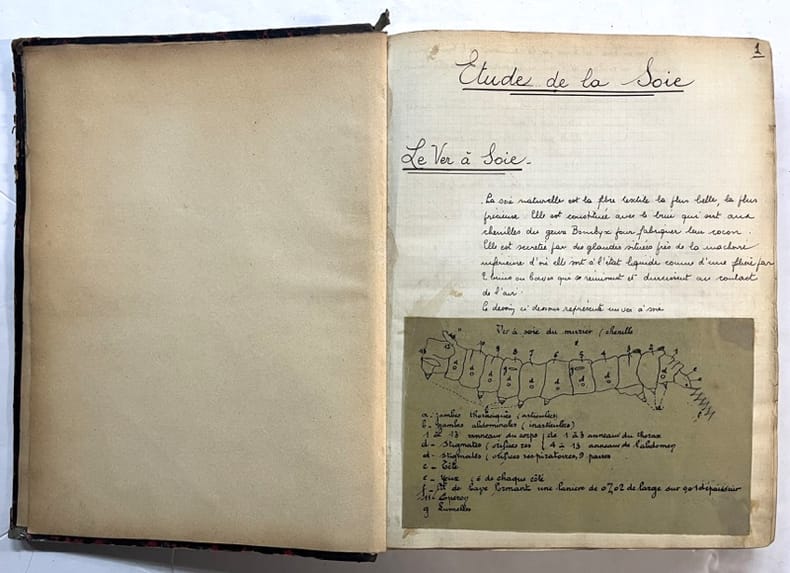 1
Etude de la Soie
Le Ver à Soie.
La soie naturelle est la fibre textile la plus belle, la plus
précieuse. Elle est constituée avec le brin qui sert aux
chenilles du genre Bombyx pour fabriquer leur cocon.
Elle est secretée par des glandes situées près de la machoire
inférieure d'où elle sort à l'état liquide comme d'une filière par
2 brins ou baves qui se réunissent et durcissent au contact
de l'air.
Ce dessin ci dessous représente un ver à soie
Ver à soie du murier (chenille
a - Jambes thoraciques (articulées)
b - Jambes abdominales (inarticulées)
1 à 13 anneaux du corps (de 1 à 3 anneaux du thorax
d - Stigmates (orifices res ( 4 à 13 anneaux de l'abdomen
d - Stigmates (orifices respiratoires, 9 paires
c - Tête
e - Yeux (6 de chaque côté
f - fil de bave formant une lanière de de large sur d'épaisseur
11 - Eperon
g Lunelles